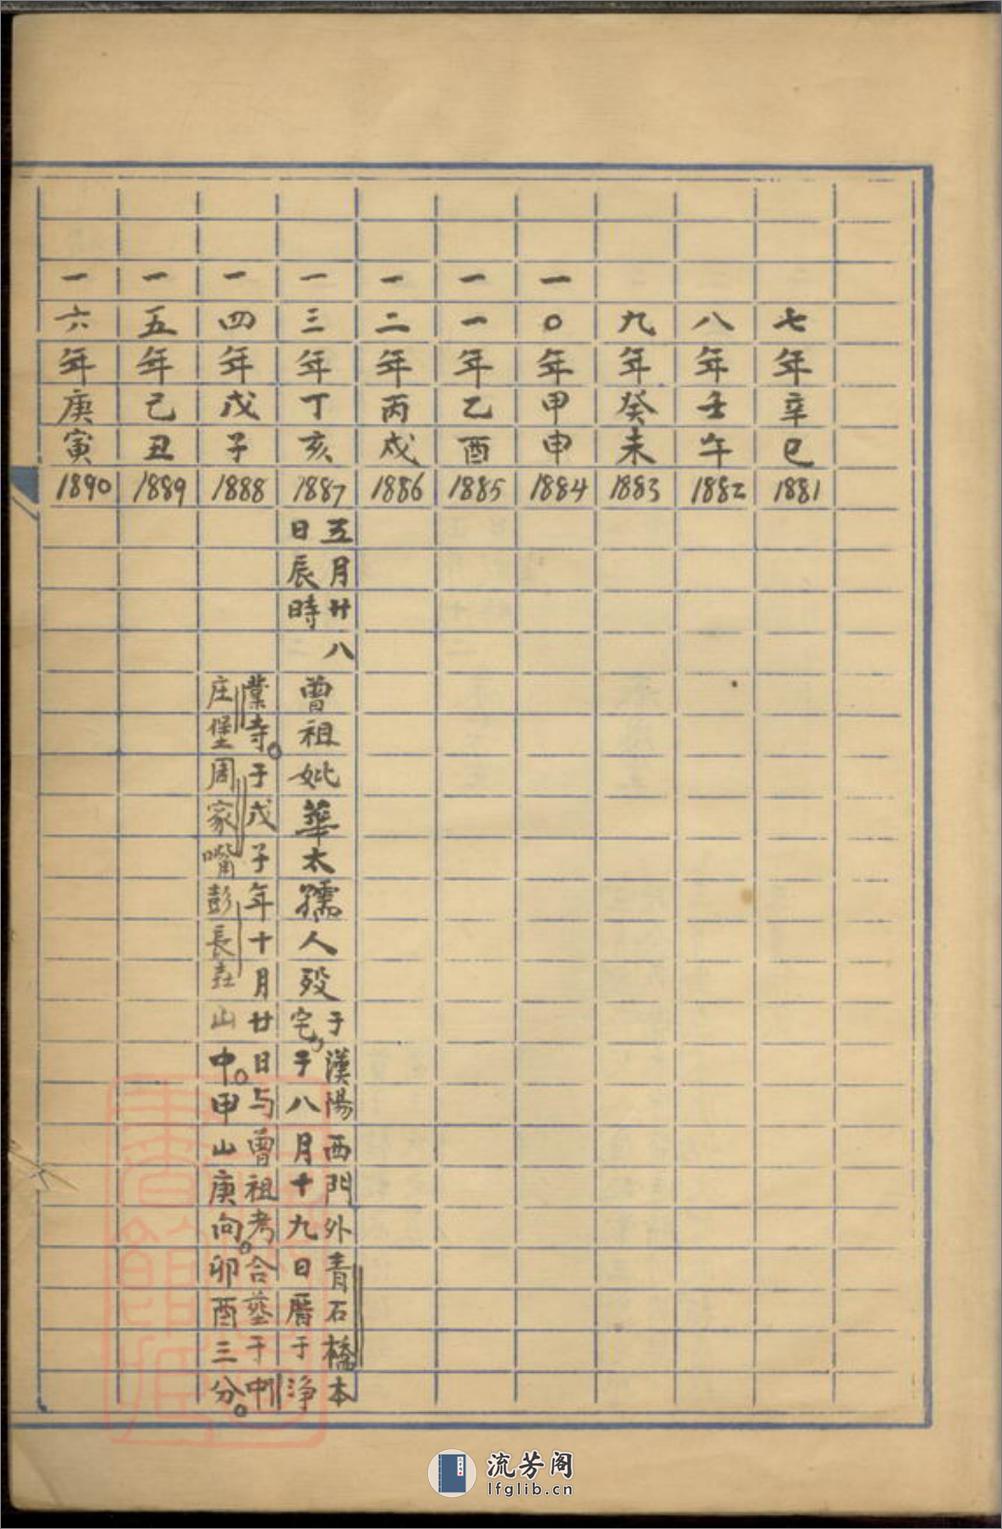 七年辛巳 1881
八年壬午 1882
九年癸未 1883
一〇年甲申 1884
一一年乙酉 1885
一二年丙戌 1886
一三年丁亥 1887
五月廿八
日辰時
曾祖妣華太孺人殁
于漢陽西門外青石橋本
宅,于八月十九日曆于浄
一四年戊子 1888
業寺。于戊子年十月廿日与曾祖考合塟于中
庄堡周家嘴彭長山中。甲山庚向。卯酉三分。
一五年己丑 1889
一六年庚寅 1890
流芳阁
lfglib.cn